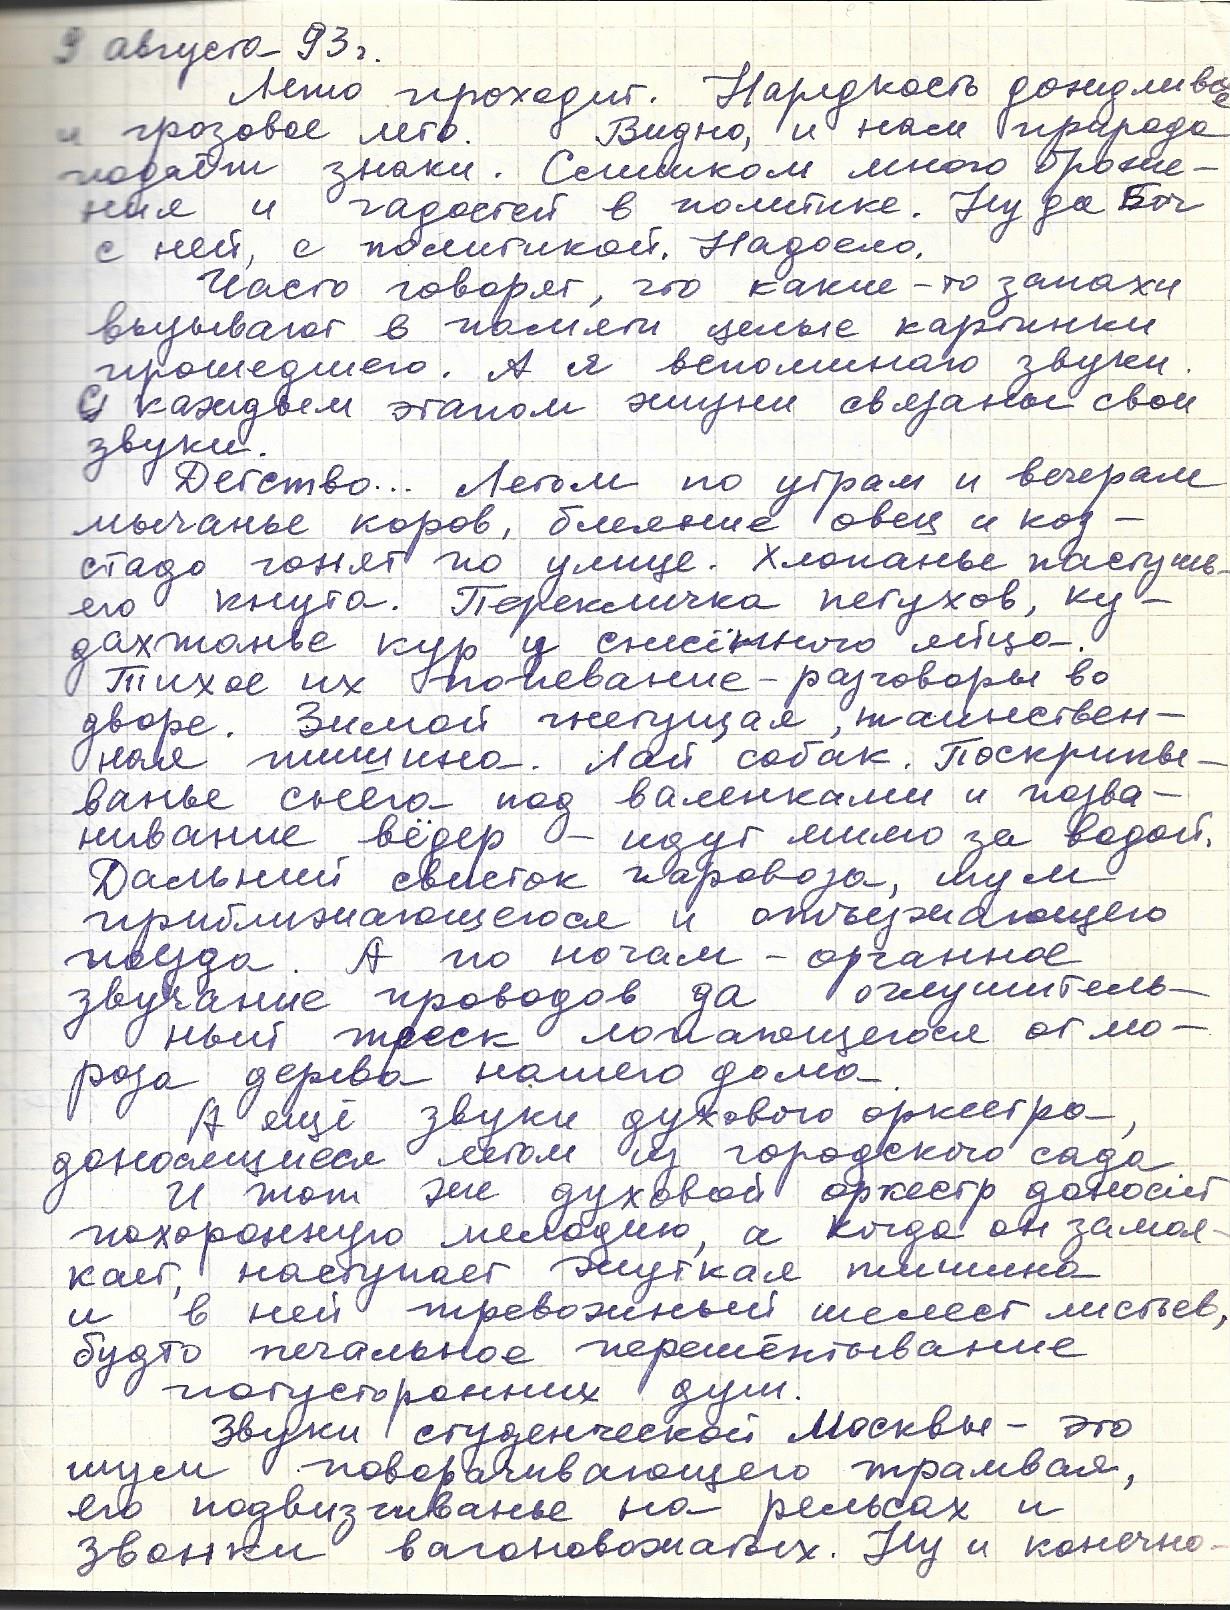 9 августа 93 г.
Лето проходит. Наредкость дождливое
и грозовое лето. Видно, и нам природа
подаёт знаки. Слишком много броже-
ния и гадостей в политике. Ну да Бог
с ней, с политикой. Надоело.
Часто говорят, что какие-то запахи
вызывают в памяти целые картинки
прошедшего. А я вспоминаю звуки.
С каждым этапом жизни связаны свои
звуки.
Детство... Летом по утрам и вечерам
мычанье коров, блеяние овец и коз -
стадо гонят по улице. Хлопанье пастушь-
его кнута. Перекличка петухов, ку-
дахтанье кур у снесённого яйца.
Тихое их попевание-разговоры во
дворе. Зимой гнетущая, таинствен-
ная тишина. Лай собак. Поскрипы-
ванье снега под валенками и позва-
нивание вёдер - идут мимо за водой.
Дальний свисток паровоза, шум
приближающегося и отъезжающего
поезда. А по ночам - органное
звучание проводов да оглушитель-
ный треск лопающегося от мо-
роза дерева нашего дома.
А ещё звуки духового оркестра,
доносящиеся летом из городского сада.
И тот же духовой оркестр доносит
похоронную мелодию, а когда он замол-
кает, наступает жуткая тишина
и в ней тревожный шелест листьев,
будто печальное перешёптывание
потусторонних душ.
Звуки студенческой Москвы - это
шум поворачивающего трамвая,
его подвизгиванье на рельсах и
звонки вагоновожатых. Ну и конечно-